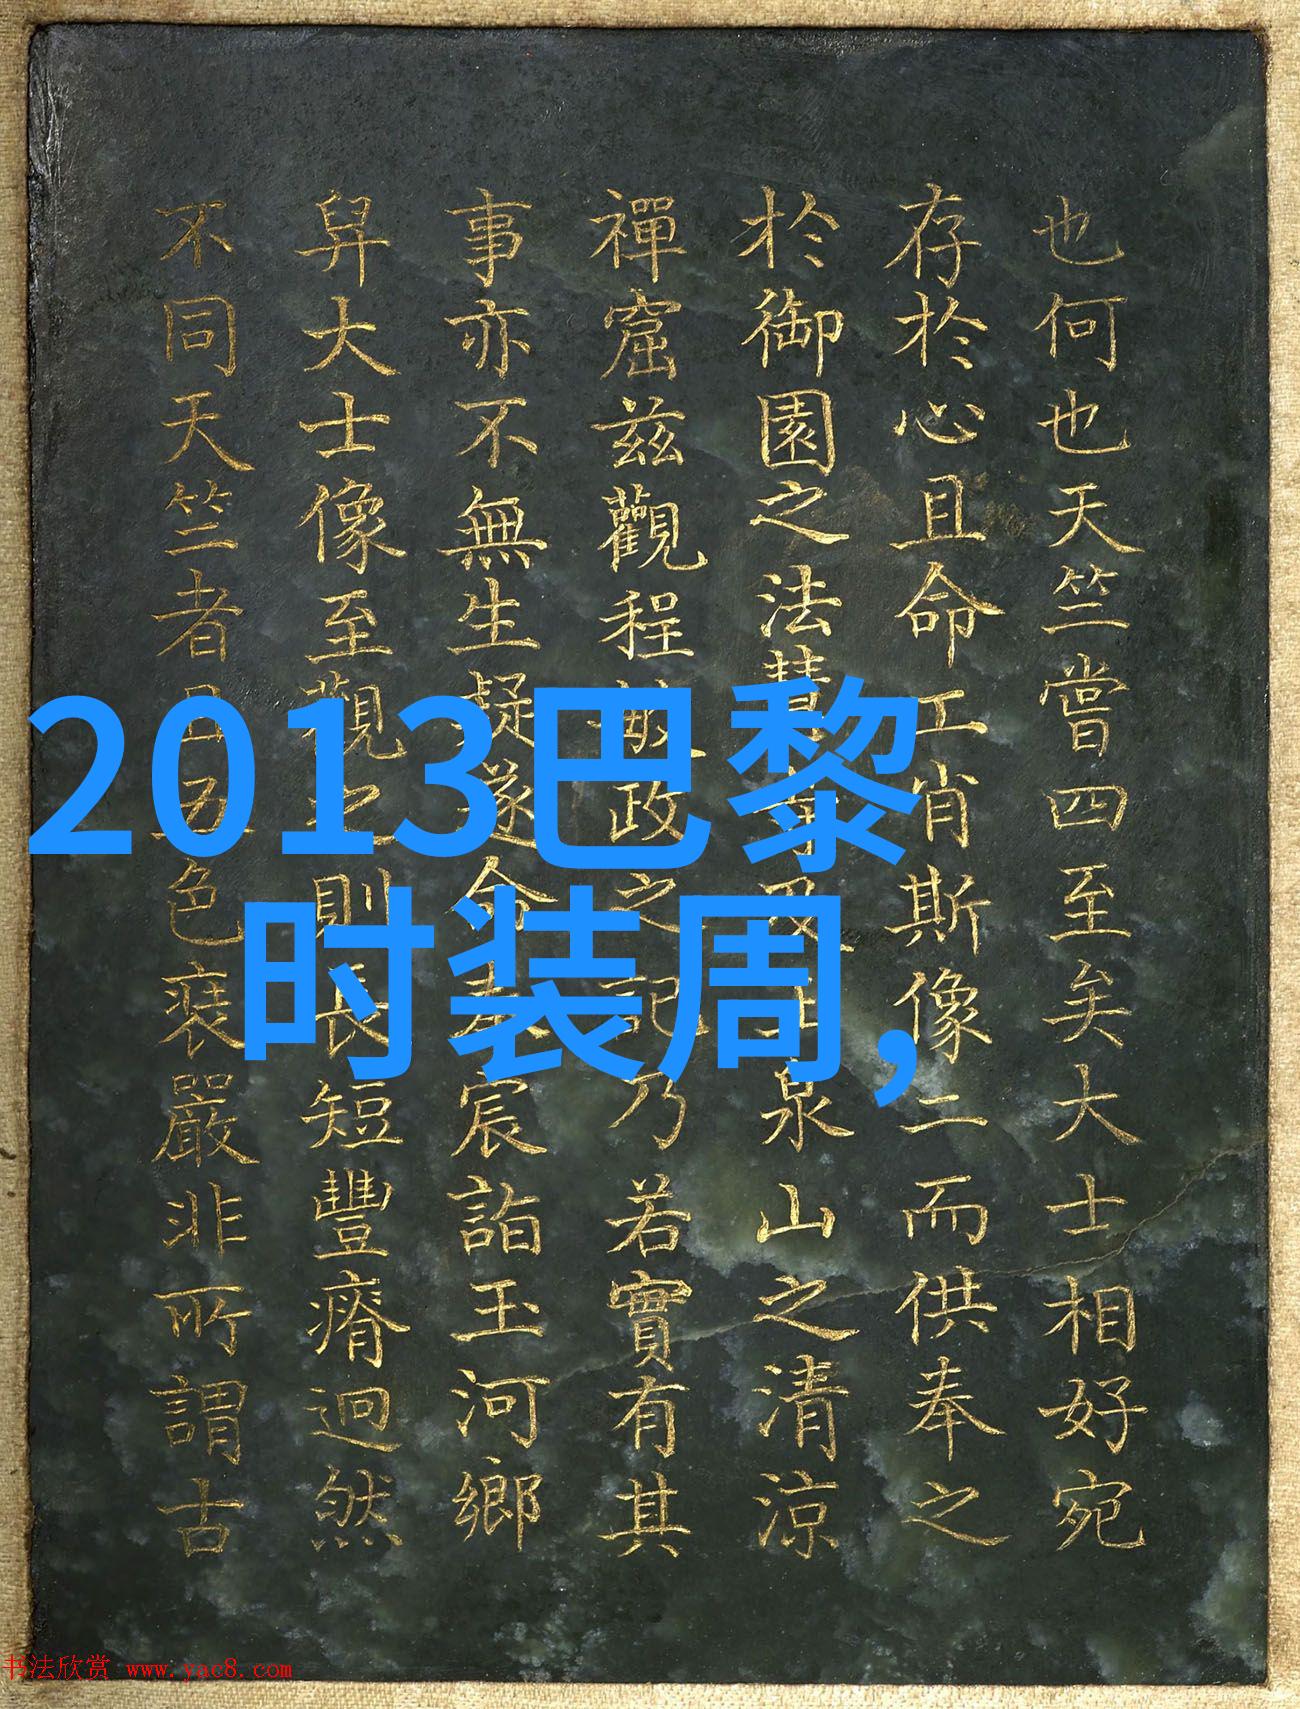 2013巴黎
时装周,
也何也天竺嘗四至矣大士相好宛
存於心且命工肖斯像二而供奉之
於御園之法慧泉山之清涼
禪窟兹觀程敏政之記乃若實有其
事亦不無生疑遂命奉宸詣玉河鄉
舁大士像至觀之則長短豐瘠迥然
不同天竺者五色嚴非所謂古
书法欣赏 www.yac8.com